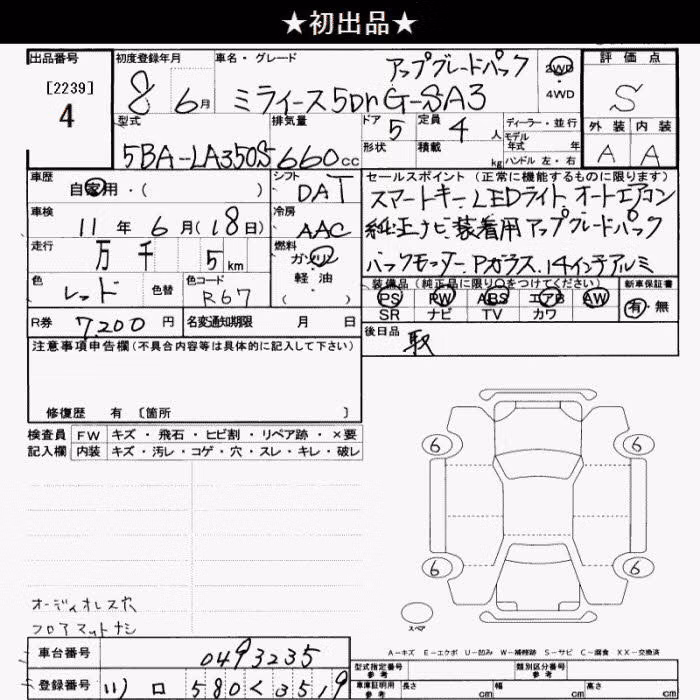 ★初出品★
出品番号
[2239]
4
初度登録年月
8 6月
車名・グレード
アップグレードパック
ミライース5Dr G-SA3
2WD
4WD
評価点
S
外装 内装
A A
型式
5BA-LA350S
排気量
660cc
ドア
5
形状
定員
4人
積載
kg
ディーラー・並行
モデル
年式 年
ハンドル 左・右
車歴
自家用・( )
シフト
DAT
車検
11年6月(18日)
冷房
AAC
走行
万千 5km
燃料
ガソリン
軽油
( )
色
レッド
色替
色コード
R67
セールスポイント(正常に機能するものに限ります)
スマートキー、LEDライト、オートエアコン
純正ナビ装着用アップグレードパック
バックモニター、Pガラス、14インチアルミ
装備品(純正品に限り○をつけてください)
PS PW ABS エアB AW
SR ナビ TV カワ
新車保証書
有・無
R券 7200円
名変通知期限 月 日
後日品
取
注意事項申告欄(不具合内容等は具体的に記入して下さい)
修復歴 有 〔箇所 〕
検査員
記入欄
FW キズ・飛石・ヒビ割・リペア跡・×要
内装 キズ・汚レ・コゲ・穴・スレ・キレ・破レ
6 6
6 6
スペア
オーディオレス穴
フロアマットナシ
A-キズ E-エクボ U-凹み W-補修跡 S-サビ C-腐食 XX-交換済
車台番号 0493235
登録番号
580く3519
型式指定番号
参考
類別区分番号
参考
車庫証明用
参考
長さ cm 幅 cm 高さ cm